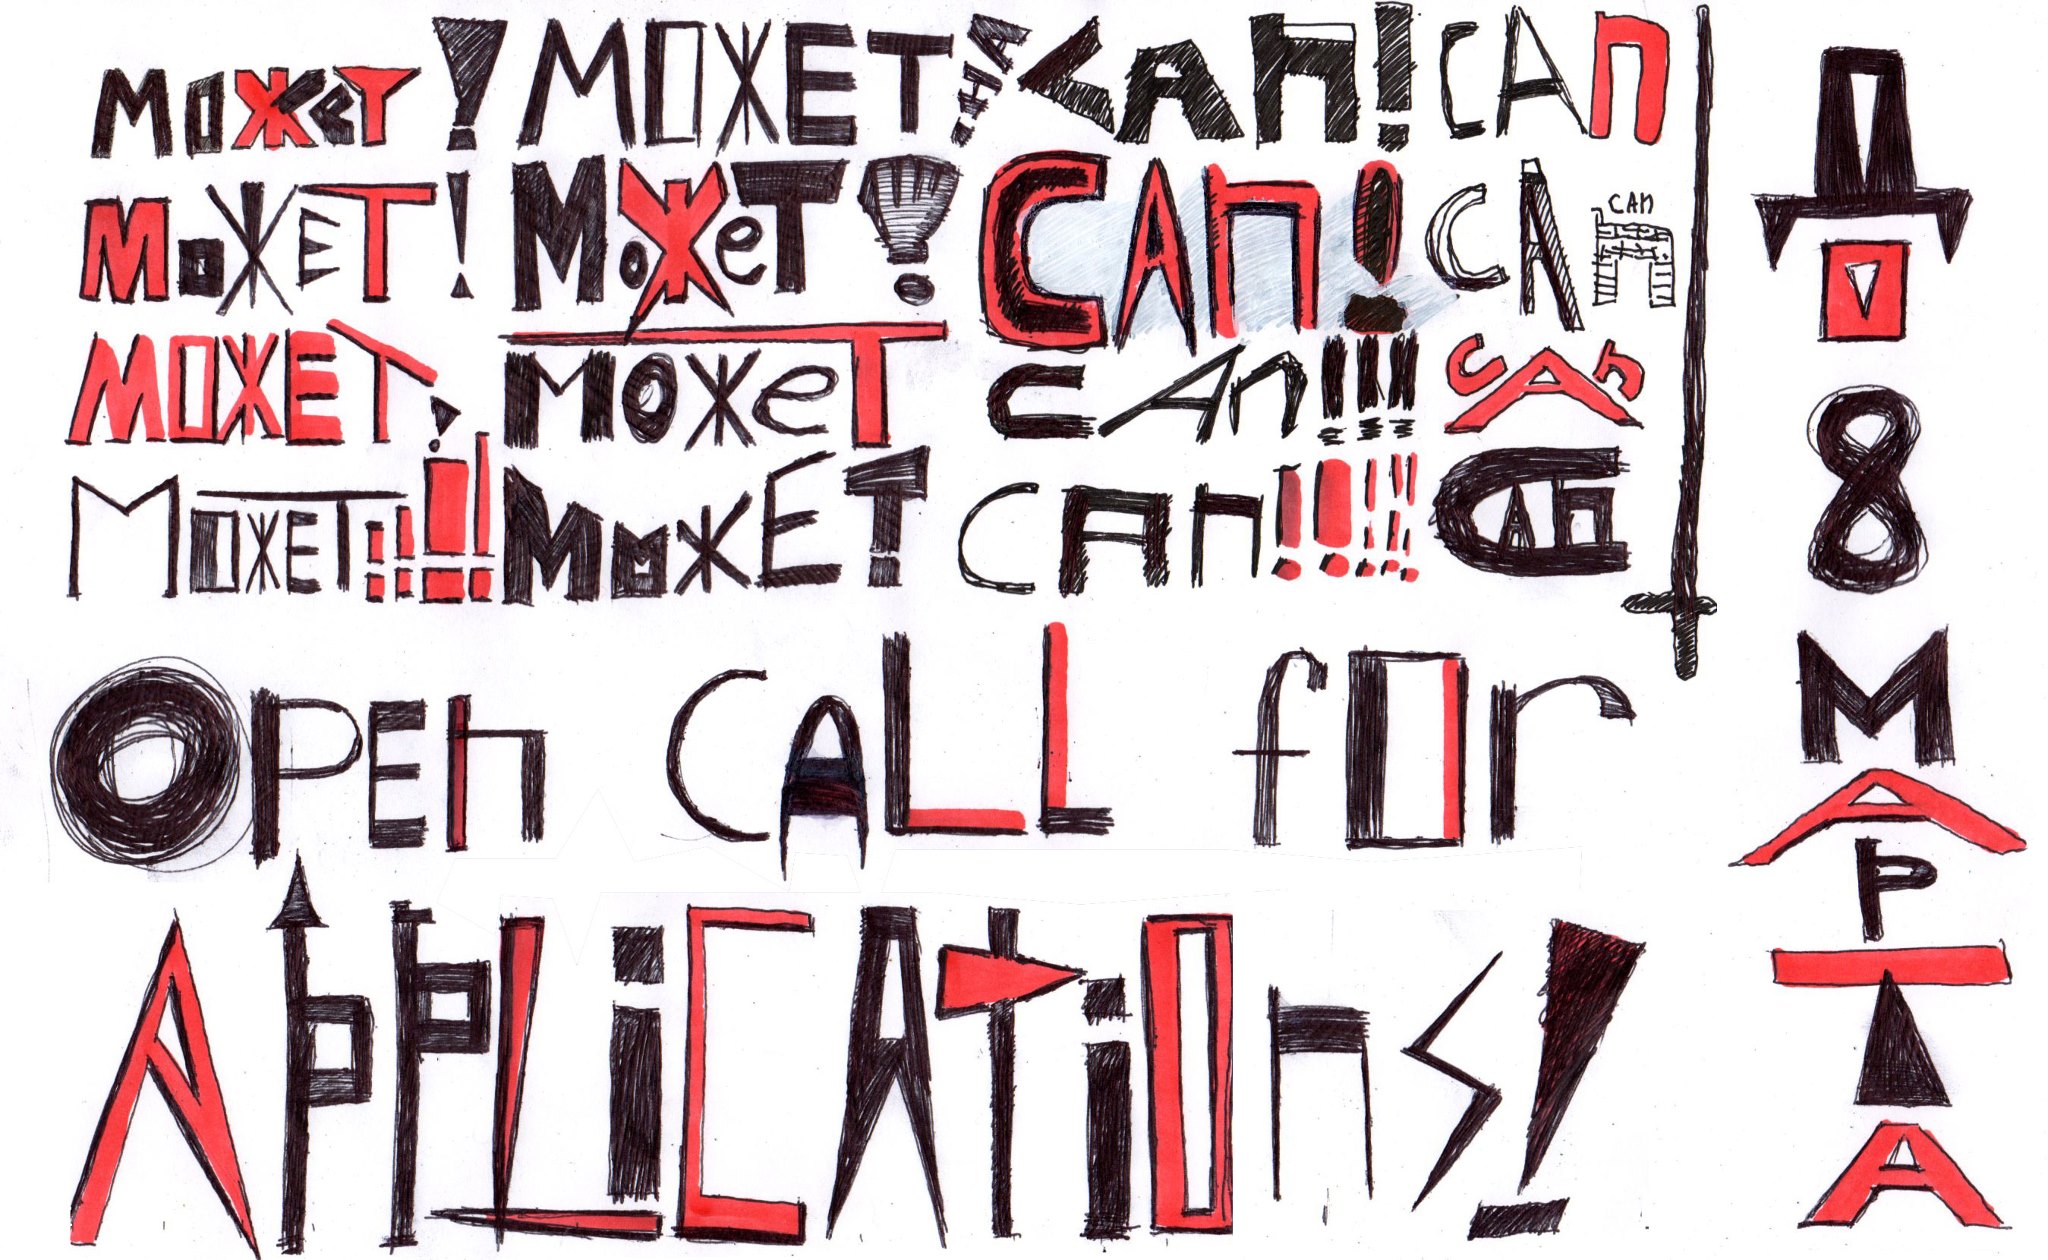 МОЖеТ! МОЖЕТ CAn! CAn
МОЖЕТ! МоЖеТ! CAn! CAn
CAn
МОЖЕТ! МОЖеТ CAn!!! CAn
МОЖЕТ!!!! МОЖЕТ! CAn!!!! CAn
OPEn CALL fOr
APPLiCATiOnS!
ДО
8
МАРТА